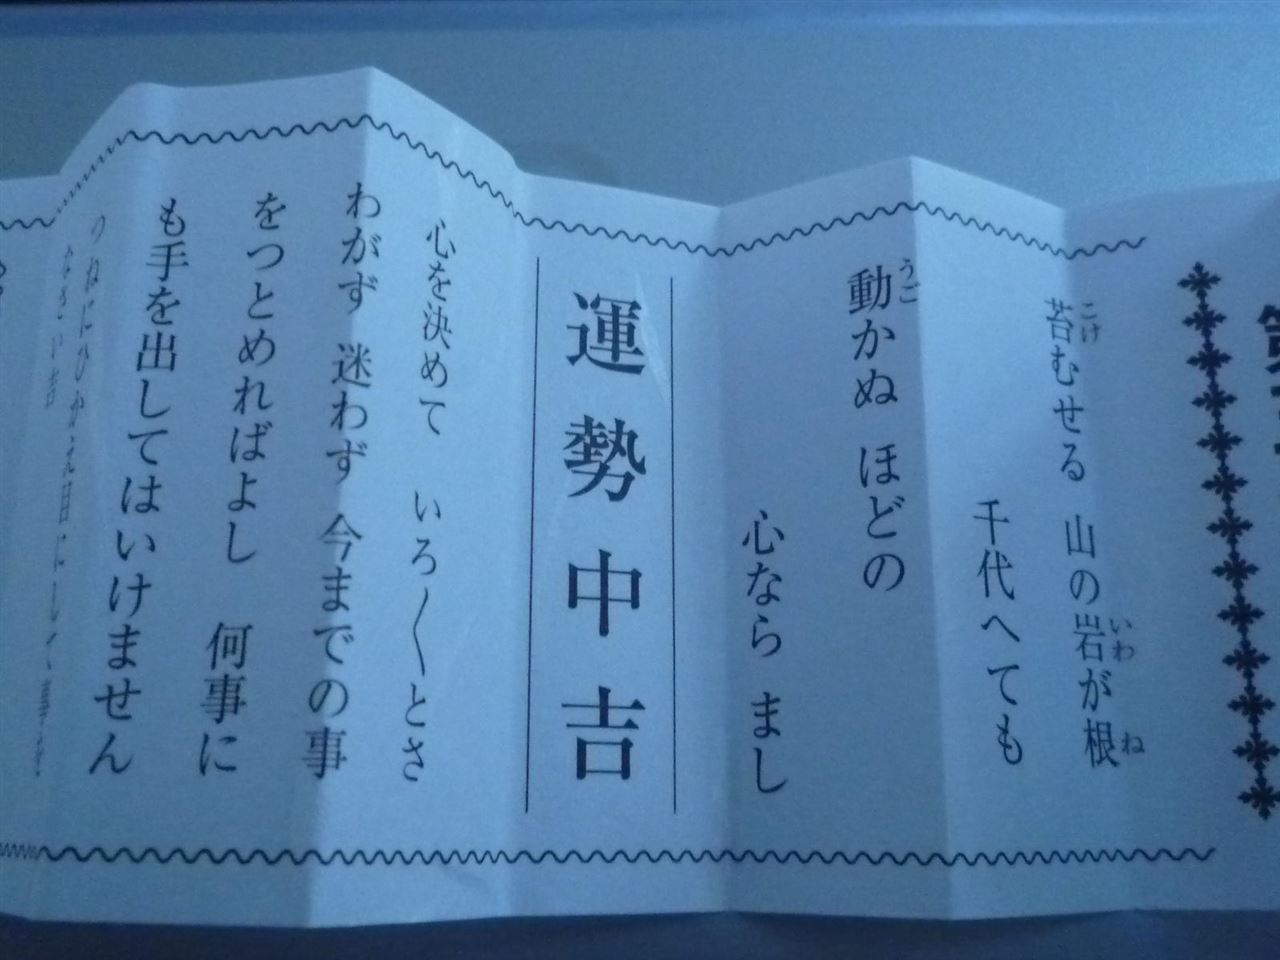 苔むせる 山の岩が根
千代へても
動かぬ ほどの
心なら まし
運勢中吉
心を決めて いろ〱とさ
わがず 迷わず 今までの事
をつとめればよし 何事に
も手を出してはいけません
つねにひかえ目に